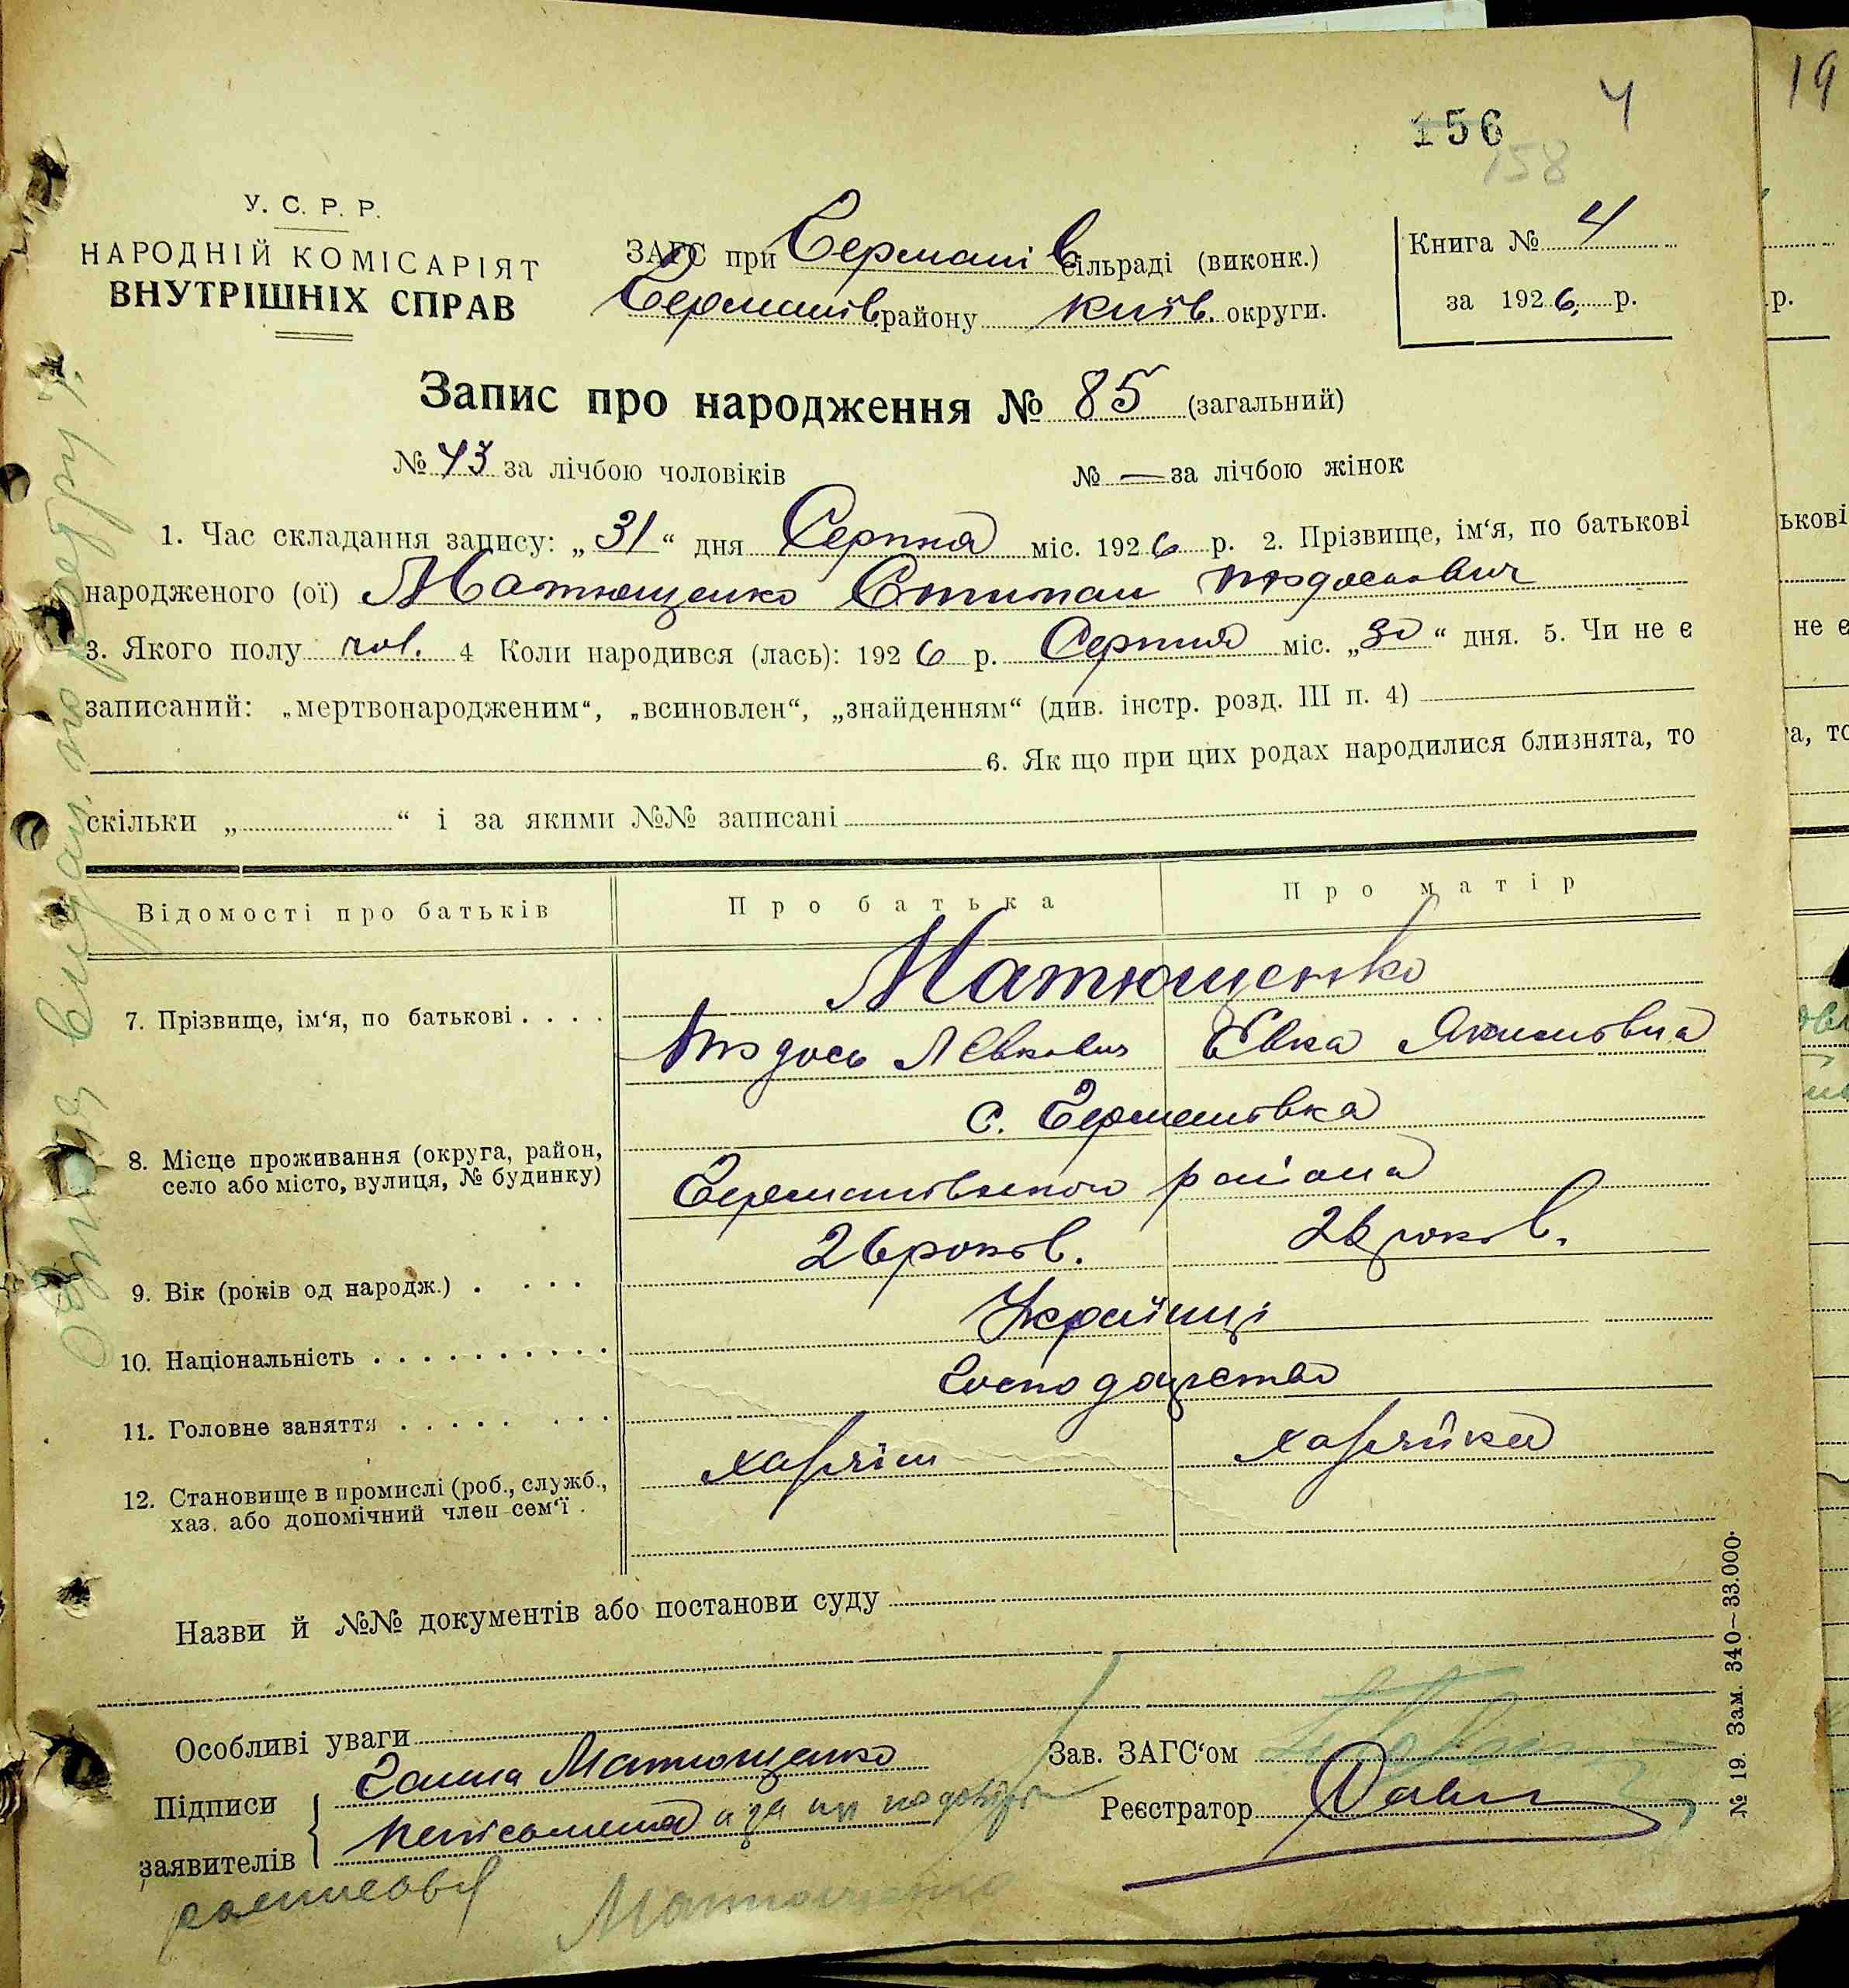 4
19
156
158
У. С. Р. Р.
НАРОДНІЙ КОМІСАРІЯТ
ВНУТРІШНІХ СПРАВ
ЗАГС при Германів сільраді (виконк.)
Германів. району Київ. округи.
Книга № 4
за 1926 р.
р.
Запис про народження № 85 (загальний)
№ 43 за лічбою чоловіків № — за лічбою жінок
1. Час складання запису: „31“ дня Серпня міс. 1926 р. 2. Прізвище, ім‘я, по батькові
ькові
народженого (ої) Матющенко Стипан
3. Якого полу чол. 4 Коли народився (лась): 1926 р. Серпня міс. „30“ дня. 5. Чи не є
не є
записаний: „мертвонародженим“, „всиновлен“, „знайденням“ (див. інстр. розд. III п. 4)
6. Як що при цих родах народилися близнята, то
а, то
скільки „ “ і за якими №№ записані
Відомості про батьків Про батька Про матір
Матющенко
7. Прізвище, ім‘я, по батькові
Тодось Левкович Євка Якимовна
с. Германовка
8. Місце проживання (округа, район,
село або місто, вулиця, № будинку)
Германовского района
9. Вік (років од народж.) 26 років. 26 років.
10. Національність Українці
11. Головне заняття Господарство
12. Становище в промислі (роб., служб.,
хаз. або допомічний член сем‘ї
хазяїн хазяйка
Назви й №№ документів або постанови суду
Особливі уваги
Підписи заявителів
Ганна Матющенко
Зав. ЗАГС‘ом
Реєстратор
Матющенко
№ 19. Зам. 340—33.000.